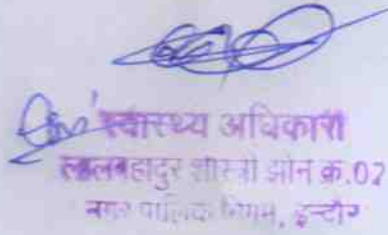 स्वास्थ्य अधिकारी
लालबहादुर शास्त्री झोन क्र.02
नगर पालिक निगम, इन्दौर